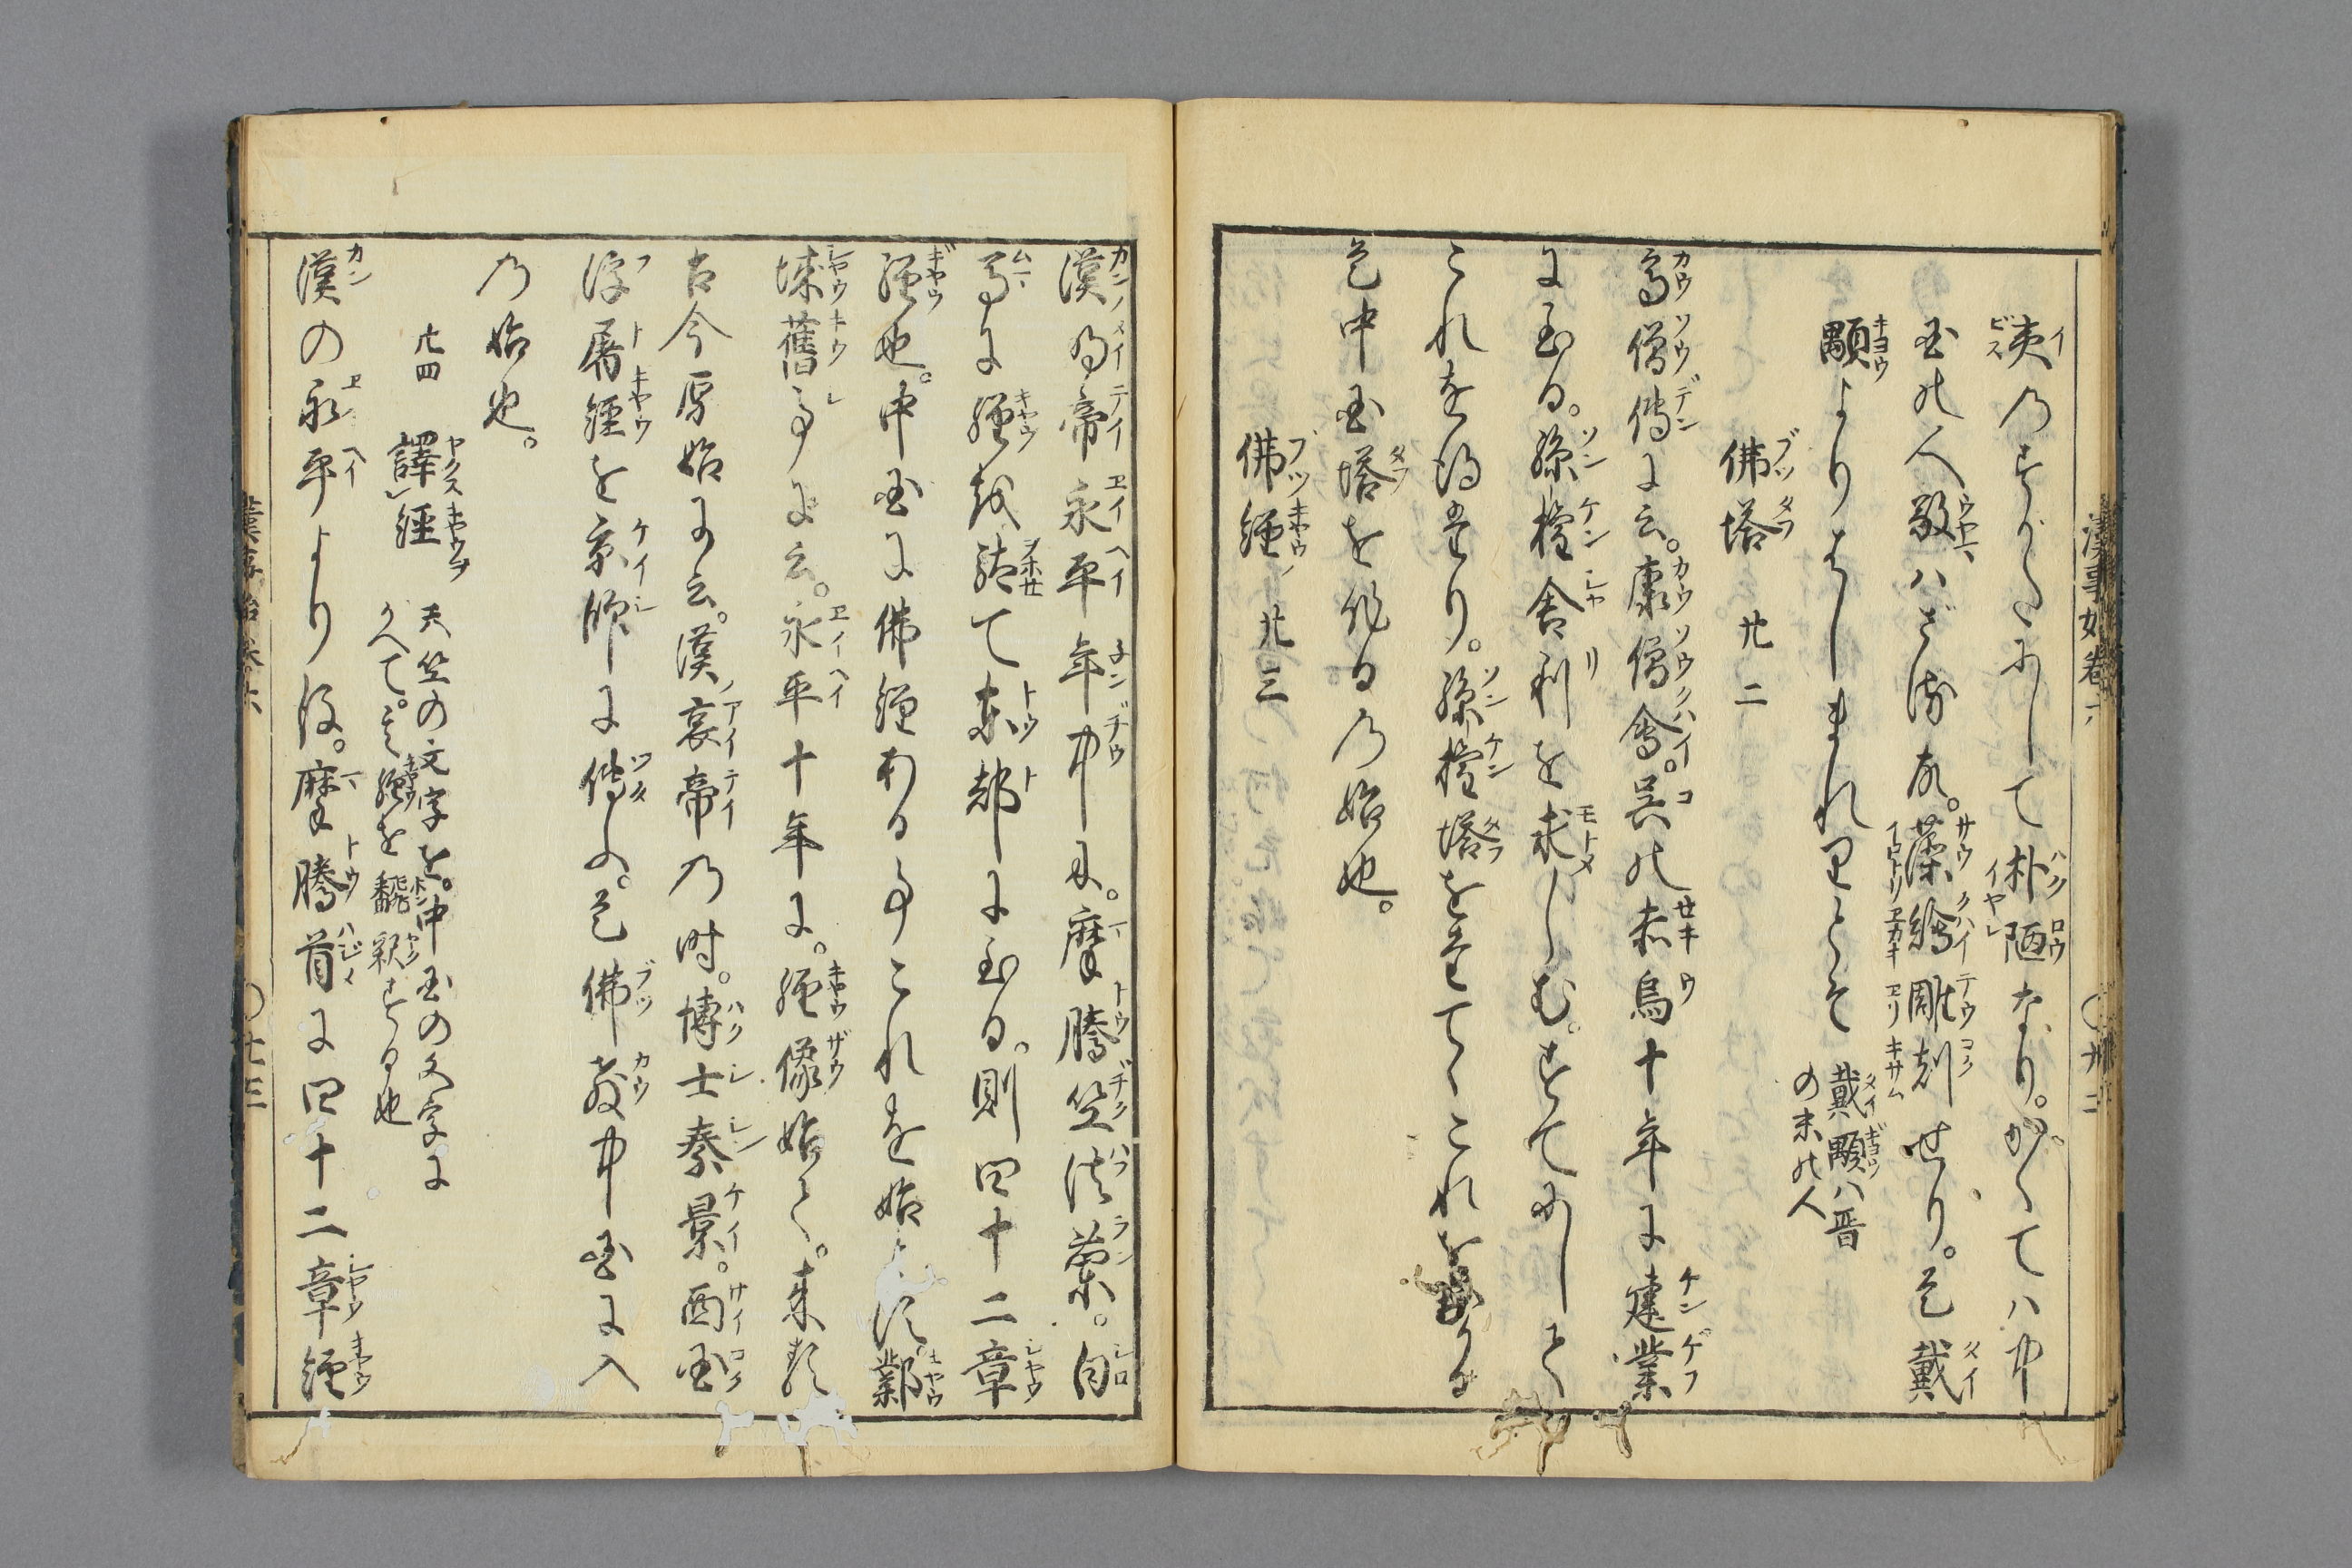 漢事始卷六
〇廿二
夷乃すがたにして朴陋なり。かくてハ中
国の人敬ハざる故。藻繪雕刻せり。是戴
顒よりはじまれりとそ 戴顒ハ晋
の末の人
佛塔 廿二
高僧傳に云。康僧會。呉の赤烏十年に建業
に至る。孫權舎利を求しむ。すてにして
これを得たり。孫權塔を立てゝこれを
是中国塔を作る乃始也。
佛經 廿三
漢明帝永平年中に。摩騰竺法蘭。白
馬に經を結て東都に至る。則四十二章
經也。中国に佛經ある事これを始
鄴
城舊事に云。永平十年に。經像始て。来る
古今原始に云。漢哀帝乃時。博士秦景。西国
浮屠經を京師に傳ふ。是佛教中国に入
乃始也。
廿四 譯經 天竺の文字を。中国の文字に
かへて。其經を飜訳する也
漢の永平より後。摩騰首に四十二章經
漢事始卷六
〇廿三